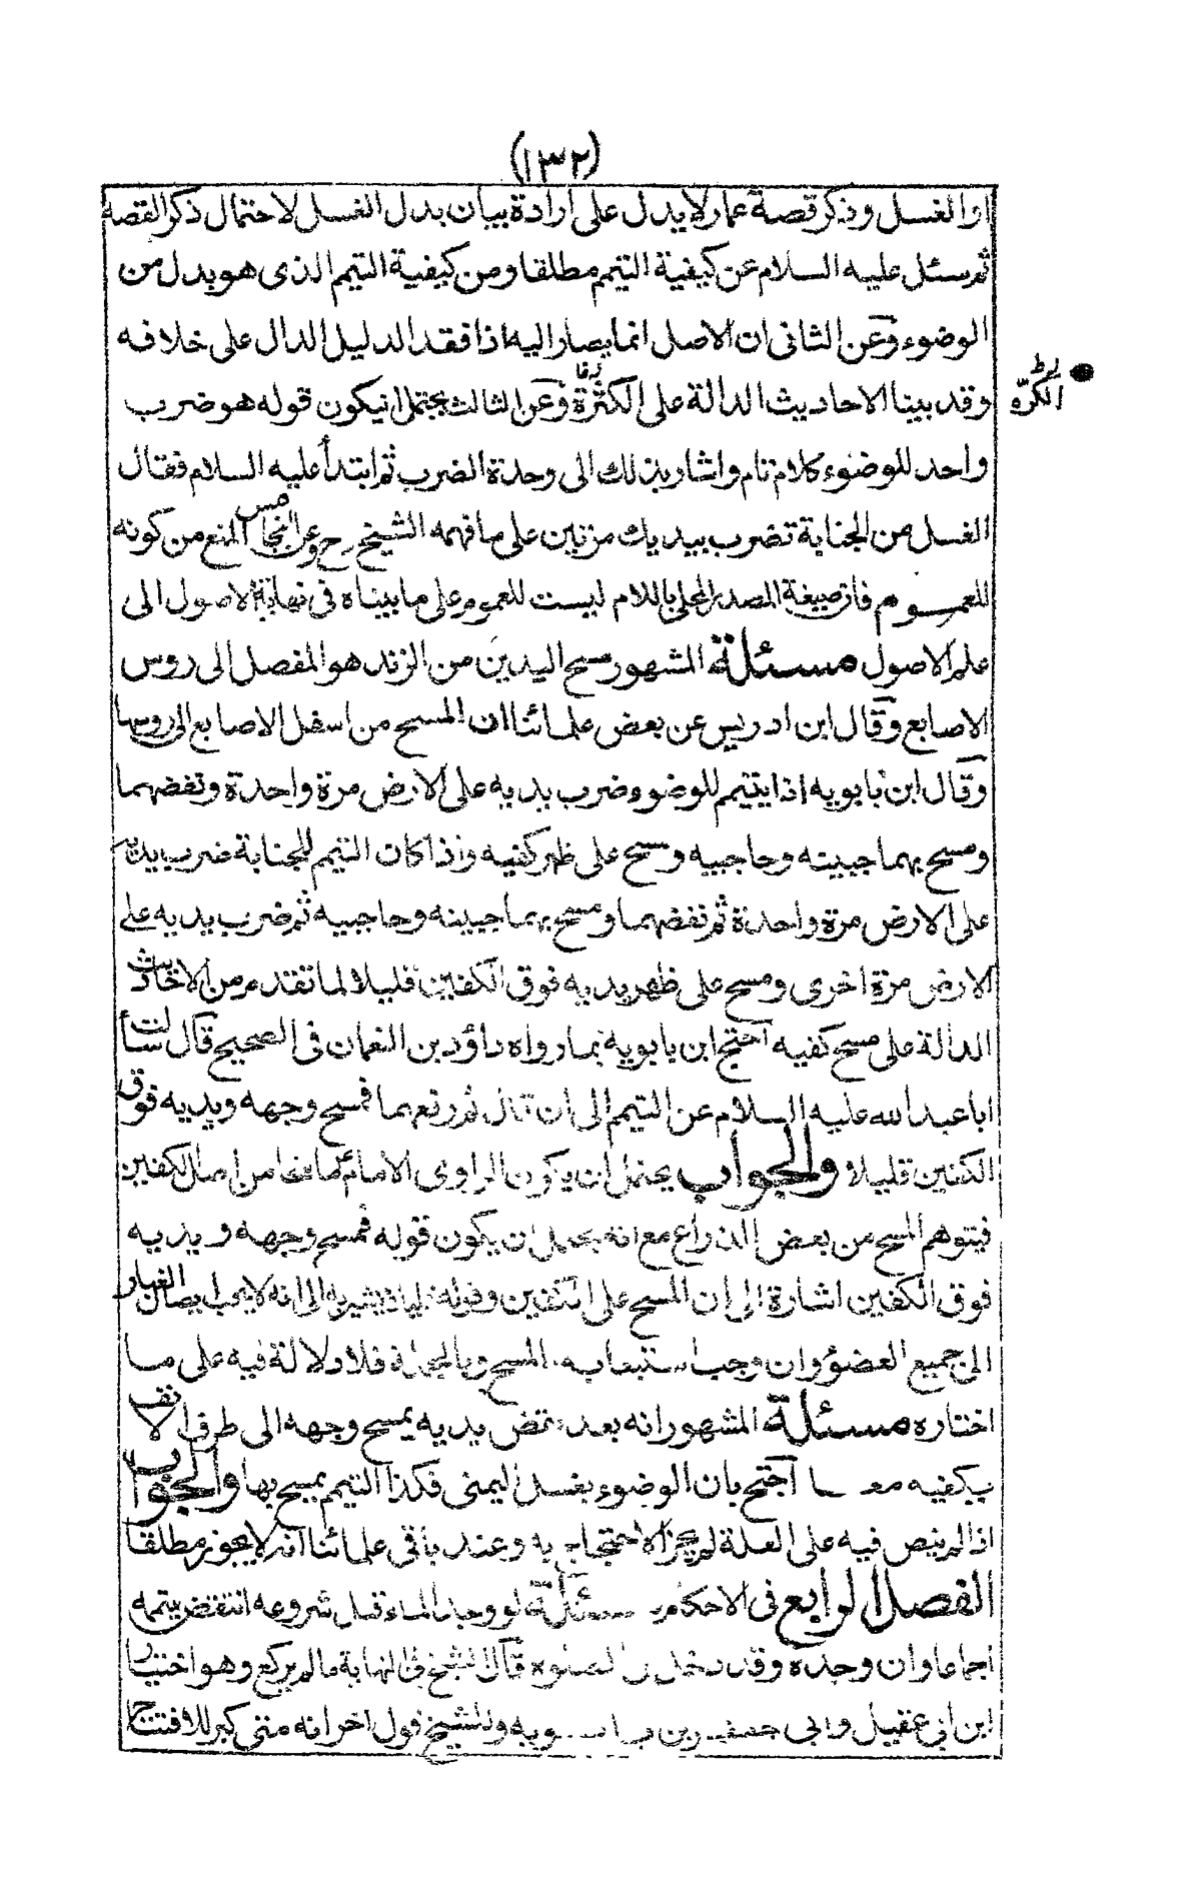 (١٣٢)
او الغسل وذكر قصة عمار لا يدل على ارادة بيان بدل الغسل لاحتمال ذكر القصة
ثم سئل عليه السلام عن كيفية التيمم مطلقا ومن كيفية التيمم الذى هو بدل من
الوضوء وعن الثانى ان الاصل انما يصار اليه اذا فقد الدليل الدال على خلافه
وقد بينا الاحاديث الدالة على الكثرة وعن الثالث يحتمل ان يكون قوله هو ضرب
الكرّه
واحد للوضوء كلام تام واشار بذلك الى وحدة الضرب ثم ابتدأ عليه السلام فقال
الغسل من الجنابة تضرب بيديك مرتين على ما فهمه الشيخ رح وعن الخامس المنع من كونه
للعموم فان صيغة المصدر المحلى باللام ليست للعموم على ما بيناه فى نهاية الاصول الى
علم الاصول مسئلة المشهور مسح اليدين من الزند هو المفصل الى روس
الاصابع وقال ابن ادريس عن بعض علمائنا ان المسح من اسفل الاصابع الى روسها
وقال ابن بابويه اذا يتيمم للوضوء ضرب يديه على الارض مرة واحدة ونفضهما
ومسح بهما جبينه وحاجبيه ومسح على ظهر كفيه واذا كان التيمم للجنابة ضرب يديه
على الارض مرة واحدة ثم نفضهما ومسح بهما جبينه وحاجبيه ثم ضرب يديه على
الارض مرة اخرى ومسح على ظهر يديه فوق الكفين قليلا لما تقدم من الاحاديث
الدالة على مسح كفيه احتج ابن بابويه بما رواه داؤد بن النعمان فى الصحيح قال سألت
ابا عبد الله عليه السلام عن التيمم الى ان قال ثم رفعهما فمسح وجهه ويديه فوق
الكفين قليلا والجواب يحتمل ان يكون الراوى من اصل الكفين
فيتوهم المسح من بعض الذراع مع انه يحتمل ان يكون قوله فمسح وجهه ويديه
فوق الكفين اشارة الى ان المسح على الكفين وقوله قليلا يشير به الى انه لا يجب ايصال الغبار
الى جميع العضو وان وجب استيعابه المسح وبالجملة فلا دلالة فيه على ما
اختاره مسئلة المشهور انه بعد نفض يديه يمسح وجهه الى طرف الانف
بكفيه معا احتج بان الوضوء يغسل اليمنى فكذا التيمم يمسح بها والجواب
اذا لم ينص فيه على العلة لم يجز الاحتجاج به وعند باقى علمائنا انه لا يجوز مطلقا
الفصل الرابع فى الاحكام مسئلة لو وجد الماء قبل شروعه انتقض تيممه
اجماعا وان وجده وقد دخل فى الصلوة قال الشيخ فى النهاية ما لم يركع وهو اختيار
ابن ابى عقيل وابى جعفر بن بابويه وللشيخ قول اخر انه متى كبر للافتتاح